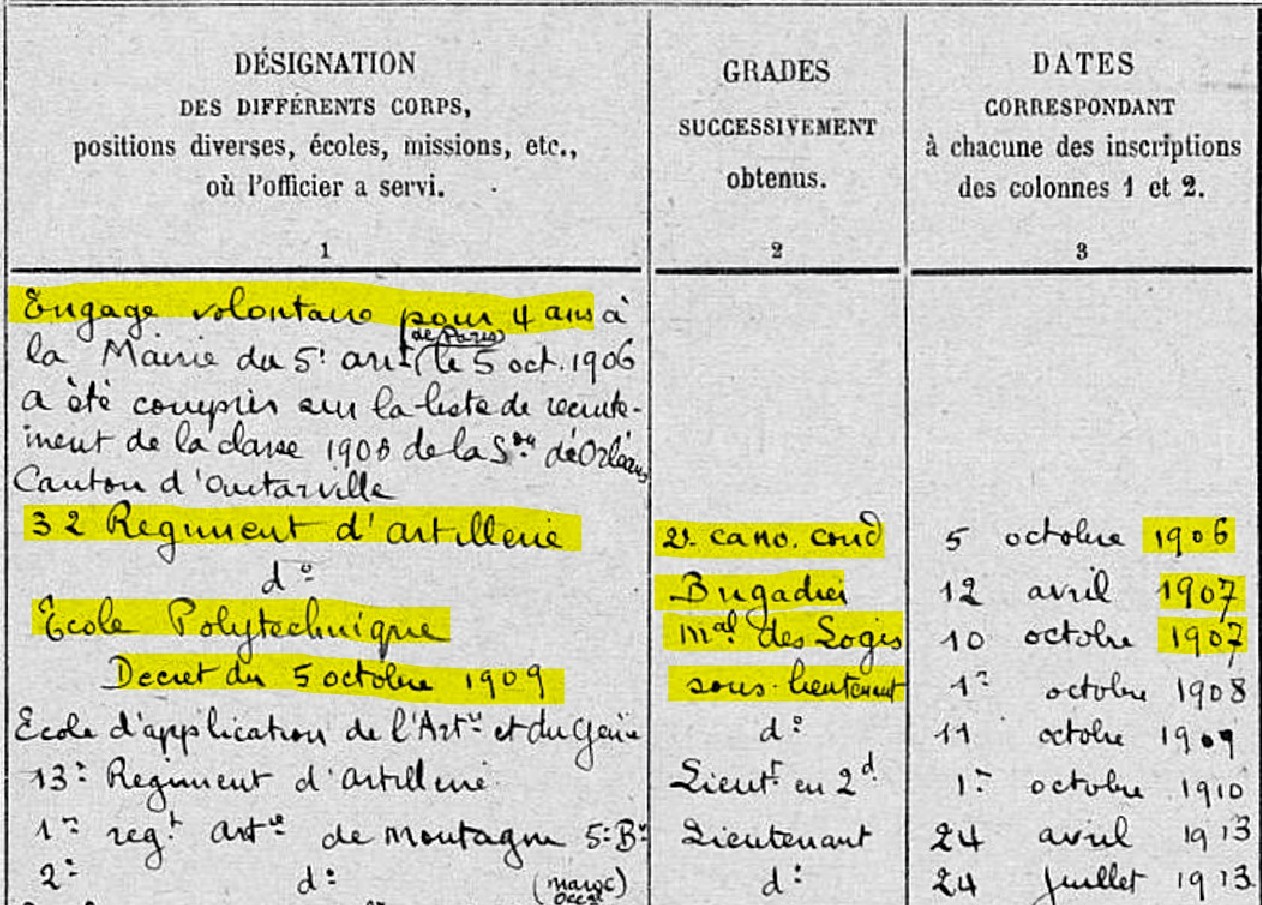 DÉSIGNATION
DES DIFFÉRENTS CORPS,
positions diverses, écoles, missions, etc.,
où l'officier a servi.
1
GRADES
SUCCESSIVEMENT
obtenus.
2
DATES
CORRESPONDANT
à chacune des inscriptions
des colonnes 1 et 2.
3
Engagé volontaire pour 4 ans à
(de Paris)
la Mairie du 5e arrt le 5 oct. 1906
a été compris sur la liste de recrute-
ment de la classe 1908 de la Son d'Orléans
Canton d'Outarville
32 Regiment d'artillerie 2e cano. cond 5 octobre 1906
do Brigadier 12 avril 1907
Ecole Polytechnique Mal des Logis 10 octobre 1907
Decret du 5 octobre 1909 sous-lieutenant 1er octobre 1908
Ecole d'application de l'Artie et du Génie do 11 octobre 1909
13e Regiment d'artillerie Lieutt en 2d 1er octobre 1910
1er regt artie de montagne 5e Bie Lieutenant 24 avril 1913
2e do (Maroc do 24 juillet 1913